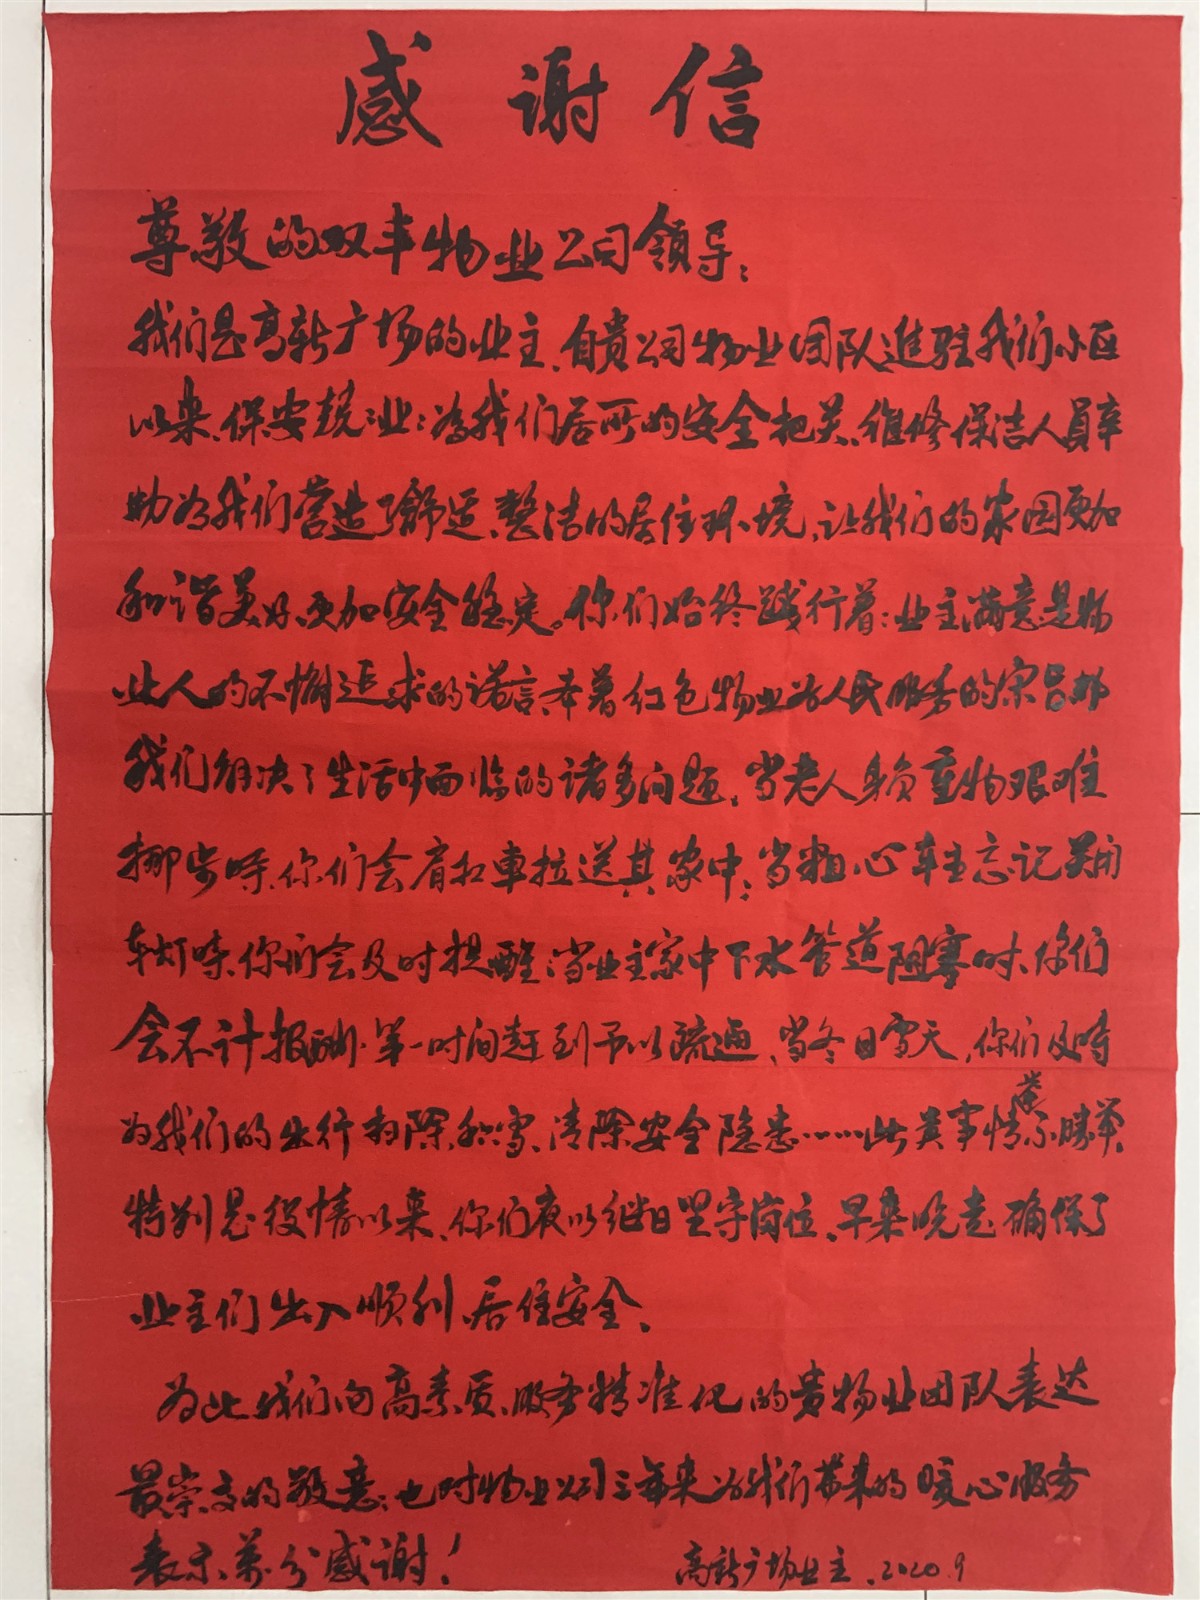 感谢信
尊敬的双丰物业公司领导：
我们是高新广场的业主、自贵公司物业团队進駐我们小区
以来、保安兢业；為我们居所的安全把关、维修保洁人員辛
勤为我们营造了舒适、整洁的居住环境，让我们的家园更加
和谐美好、更加安全稳定。你们始终践行着：业主满意是物
业人的不懈追求的诺言、奉着红色物业为人民服务的宗旨、帮
我们解决了生活中面临的诸多问题，当老人身負重物艰难
挪步时、你们会肩扛車拉送其家中；当粗心车主忘记关闭
车灯时、你们会及时提醒；当业主家中下水管道阻塞时、你们
会不计报酬、第一时间赶到予以疏通、当冬日雪天，你们及时
为我们的出行扫除积雪、清除安全隐患……此类事情举不勝举、
特别是役情以来、你们夜以继日坚守岗位、早来晚走确保了
业主们出入顺利、居住安全、
为此我们向高素质、服务精准化的贵物业团队表达
最崇高的敬意；也对物业公司三年来为我们带来的暖心服务
表示万分感谢！
高新广场业主、2020.9